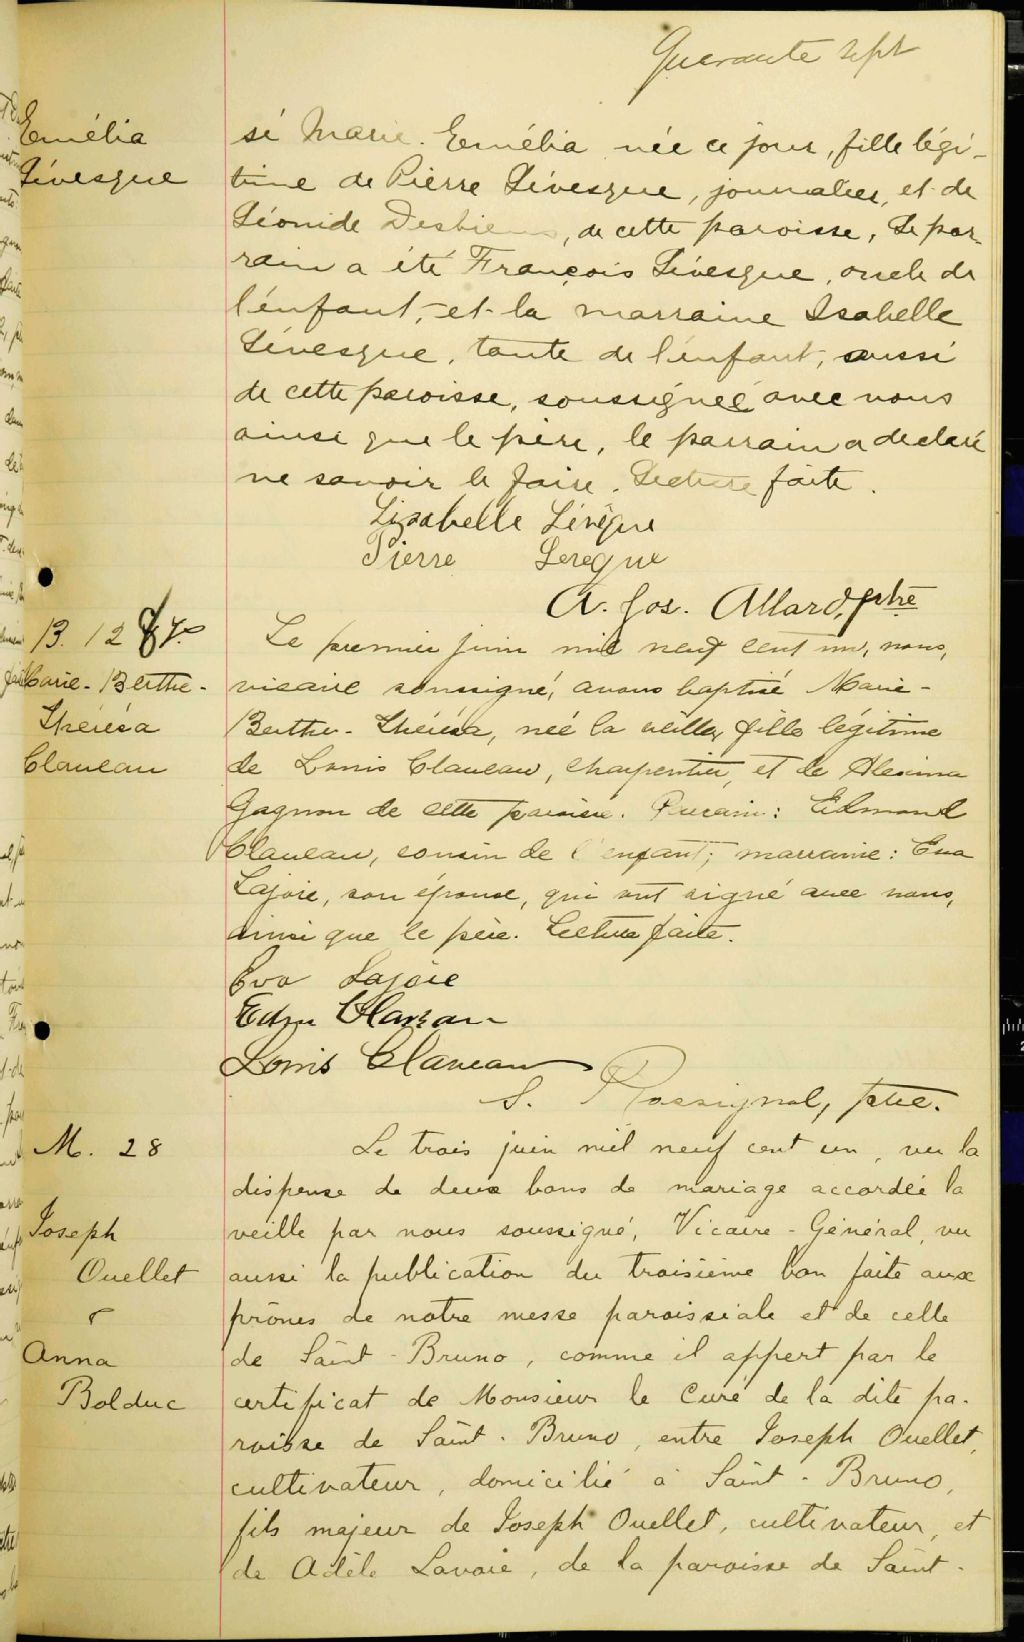 Quarante sept
Emélia
Lévesque
sé Marie. Emélia née ce jour, fille légi-
time de Pierre Lévesque, journalier, et de
Léonide Desbiens, de cette paroisse, Le par-
rain a été François Lévesque, oncle de
l'enfant, et la marraine Isabelle
Lévesque, tante de l'enfant, aussi
de cette paroisse, soussignée avec nous
ainsi que le père, le parrain a declaré
ne savoir le faire. Lecture faite.
Lisabelle Lévêque
Pierre Leveque
A. Jos. Allard, ptre
B. 127
Marie-Berthe-
Thérésa
Claveau
Le premier juin mil neuf cent un, nous,
vicaire soussigné, avons baptisé Marie-
Berthe-Thérésa, née la veille, fille légitime
de Louis Claveau, charpentier, et de Alexina
Gagnon de cette paroisse. Parrain: Edmond
Claveau, cousin de l'enfant; marraine: Eva
Lajoie, son épouse, qui ont signé avec nous,
ainsi que le père. Lecture faite.
Eva Lajoie
Edm Claveau
Louis Claveau
S. Rossignol, ptre.
M. 28
Joseph
Ouellet
&
Anna
Bolduc
Le trois juin mil neuf cent un, vu la
dispense de deux bans de mariage accordée la
veille par nous soussigné, Vicaire-Général, vu
aussi la publication du troisième ban faite aux
prônes de notre messe paroissiale et de celle
de Saint-Bruno, comme il appert par le
certificat de Monsieur le Curé de la dite pa-
roisse de Saint-Bruno, entre Joseph Ouellet,
cultivateur, domicilié à Saint-Bruno,
fils majeur de Joseph Ouellet, cultivateur, et
de Adèle Lavoie, de la paroisse de Saint-